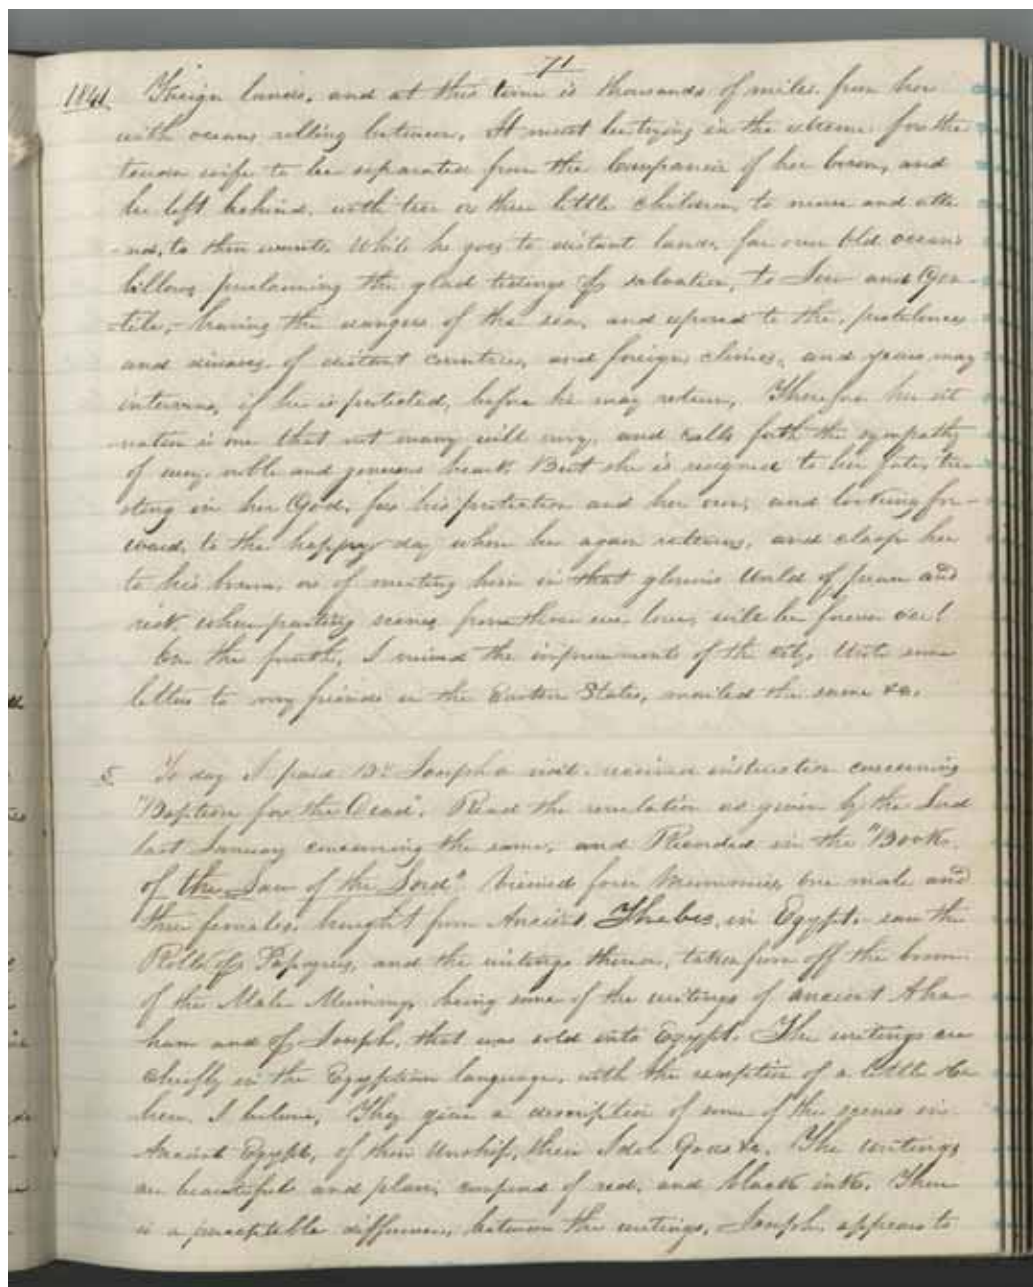 71
1841. Foreign lands, and at this time is thousands of miles from her
with oceans rolling between. It must be trying in the extreme for the
tender wife to be separated from the Companion of her bosom, and
be left behind, with two or three little children, to nurse and atte
-nd, to their wants. While he goes to distant lands, far over Old ocean's
billows, proclaiming the glad tidings of salvation, to Jew and Gen-
-tile,- braving the dangers of the sea, and exposed to the pestilence
and diseases, of distant countries, and foreign climes, and years may
intervene, if he is protected, before he may return, Therefore her sit
-uation is one that not many will envy, and calls forth the sympathy
of every noble and generous heart. But she is resigned to her fate, tru
sting in her God, for his protection and her own, and looking for-
ward, to the happy day when he again returns, and clasps her
to his bosom, or of meeting him in that glorious World of peace and
rest where parting scenes from those we love, will be forever oer!
On the fourth, I viewed the improvements of the city, Wrote some
letters to my friends in the Eastern States, mailed the same &c.
5 To day I paid Br Joseph a visit. received instruction concerning
"Baptism for the Dead". Read the revelation as given by the Lord
last January concerning the same, and Recorded in the "Book
of the Law of the Lord" Viewed four Mummies, one male and
three females, brought from Ancient Thebes, in Egypt. saw the
Rolls of Papyrus, and the writings thereon, taken from off the bosom
of the Male Mummy, being some of the writings of ancient Abra
ham and of Joseph, that was sold into Egypt. The writings are
chiefly in the Egyptian language, with the exception of a little He
brew. I believe, They give a description of some of the scenes in
Ancient Egypt, of their Worship, their Idol Gods &c. The writings
are beautiful and plain, composed of red, and black inks. There
is a perceptible difference, between the writings. Joseph, appears to